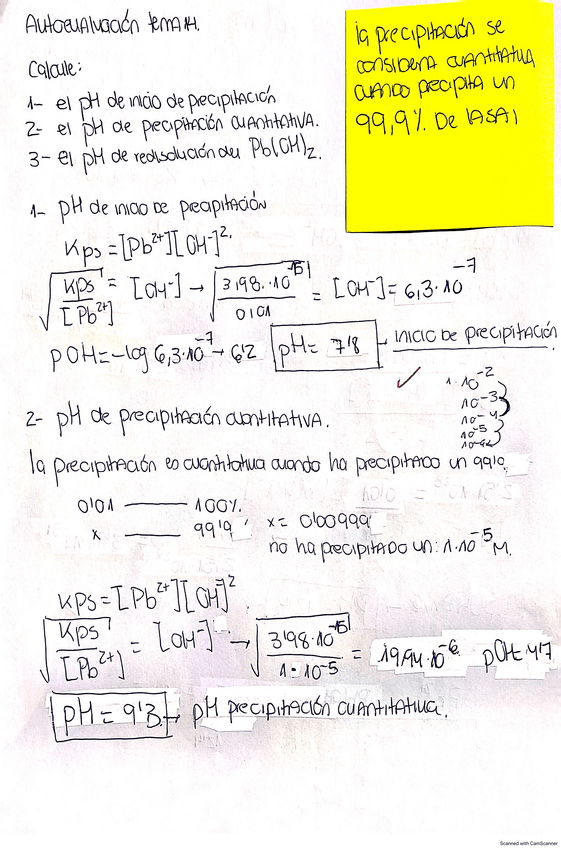 Autoevaluación tema 14.
la precipitación se
considera cuantitativa
cuando precipita un
99,9%. De la sal
Calcule:
1- el pH de inicio de precipitación
2- el pH de precipitación cuantitativa.
3- el pH de redisolución del Pb(OH)2.
1- pH de inicio de precipitación
Kps = [Pb2+][OH-]2.
√Kps/[Pb2+] = [OH-] → √3'98.·10-15/0'01 = [OH-] = 6,3·10-7
pOH = -log 6,3·10-7 → 6'2 pH = 7'8 → inicio de precipitación
1·10-2
10-3
10-4
10-5
2- pH de precipitación cuantitativa.
la precipitación es cuantitativa cuando ha precipitado un 99'9.
0'01 —— 100%.
x —— 99'9 x = 0'00999
no ha precipitado un: 1·10-5 M.
Kps = [Pb2+][OH-]2
√Kps/[Pb2+] = [OH-] → √3'98·10-15/1·10-5 = 19,94·10-6 pOH = 4'7
pH = 9'3 → pH precipitación cuantitativa.
Scanned with CamScanner